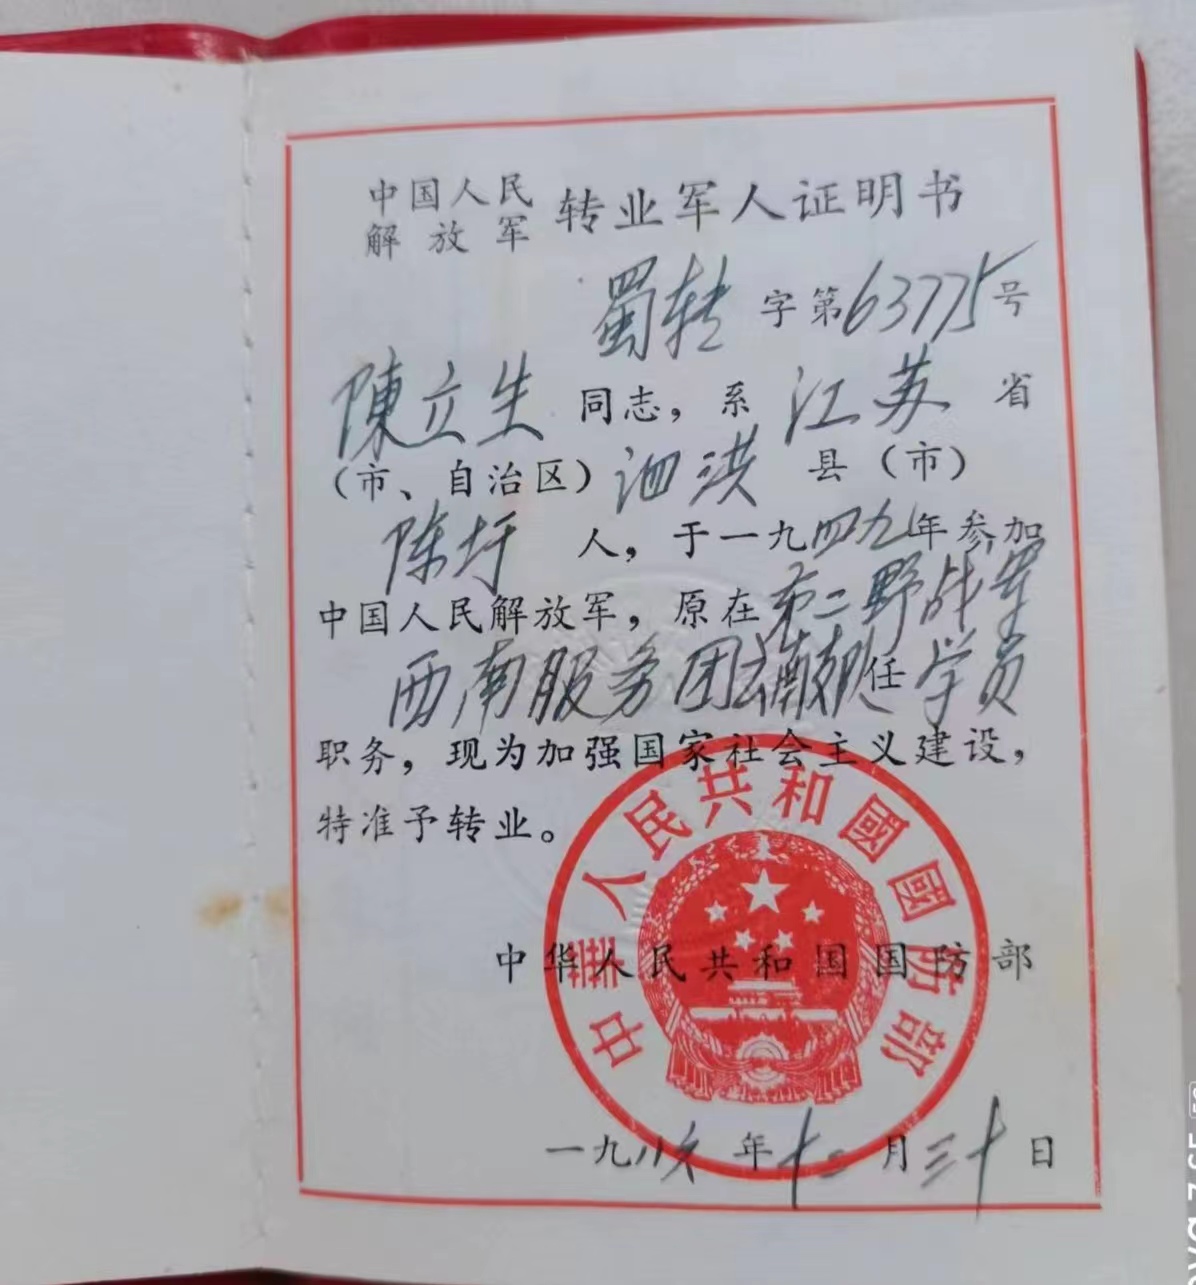 中国人民
解放军 转业军人证明书
蜀转字第63775号
陳立生同志，系江苏省
（市、自治区）泗洪县（市）
陈圩人，于一九四九年参加
中国人民解放军，原在第二野战军
西南服务团任学员
职务，现为加强国家社会主义建设，
特准予转业。
中华人民共和国国防部
中華人民共和國國防部
一九八六年十二月三十日